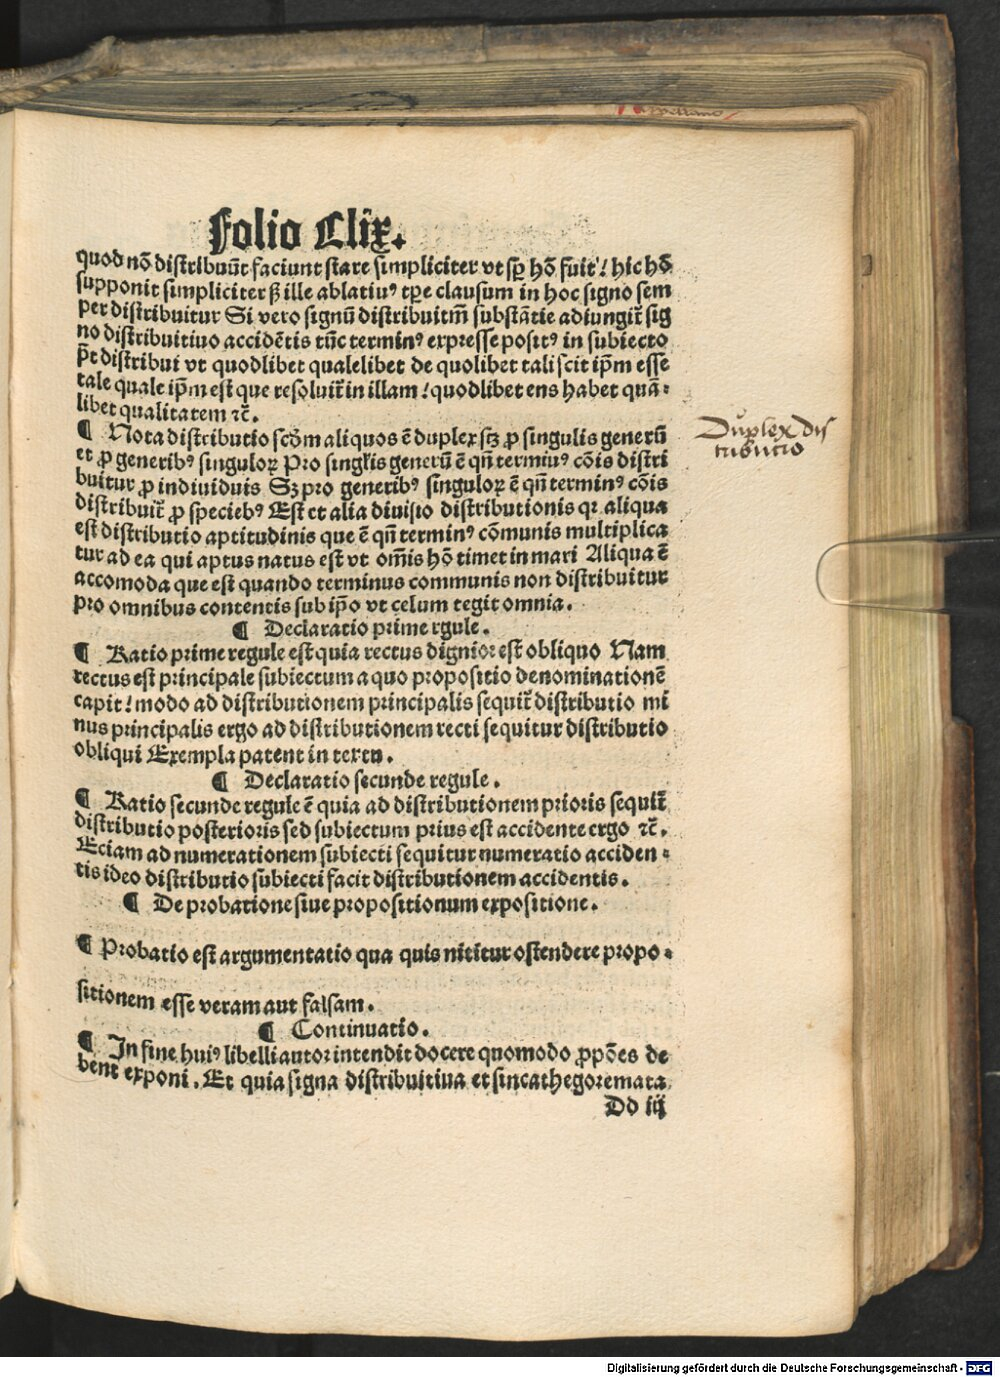 Folio Clix.
quod nō distribuūt faciunt stare simpliciter vt sꝑ hō fuit / hic hō
supponit simpliciter ꝫ ille ablatiuꝰ tꝑe clausum in hoc signo sem
per distribuitur Si vero signū distribuitiuū substātie adiungit̄ sig
no distribuitiuo accidētis tūc terminꝰ expresse positꝰ in subiecto
pt̄ distribui vt quodlibet qualelibet de quolibet tali scit ip̄m esse
tale quale ip̄m est que resoluit̄ in illam / quodlibet ens habet quā⸗
libet qualitatem ꝛc̄.
¶ Nota distributio scd̄m aliquos ē duplex scꝫ ꝓ singulis generū
et ꝓ generibꝰ singuloꝝ Pro singl̄is generū ē qn̄ terminꝰ cōis distri
buitur ꝓ indiuiduis Sꝫ pro generibꝰ singuloꝝ ē qn̄ terminꝰ cōis
distribuit̄ ꝓ speciebꝰ Est et alia diuisio distributionis qꝛ aliqua
est distributio aptitudinis que ē qn̄ terminꝰ cōmunis multiplica
tur ad ea qui aptus natus est vt om̄is hō timet in mari Aliqua ē
accomoda que est quando terminus communis non distribuitur
pro omnibus contentis sub ip̄o vt celum tegit omnia.
¶ Declaratio prime rgule.
¶ Ratio prime regule est quia rectus dignior est obliquo Nam
rectus est principale subiectum a quo propositio denominationē
capit / modo ad distributionem principalis sequit̄ distributio mi
nus principalis ergo ad distributionem recti sequitur distributio
obliqui Exempla patent in textu.
¶ Declaratio secunde regule.
¶ Ratio secunde regule ē quia ad distributionem prioris sequit̄
distributio posterioris sed subiectum prius est accidente ergo ꝛc̄.
Eciam ad numerationem subiecti sequitur numeratio acciden⸗
tis ideo distributio subiecti facit distributionem accidentis.
¶ De probatione siue propositionum expositione.
¶ Probatio est argumentatio qua quis nititur ostendere propo⸗
sitionem esse veram aut falsam.
¶ Continuatio.
¶ In fine huiꝰ libelli autor intendit docere quomodo ꝓpōes de
bent exponi. Et quia signa distribuitiua et sincathegoremata
Dd iij
Duplex dis
tributio
Digitalisierung gefördert durch die Deutsche Forschungsgemeinschaft - DFG